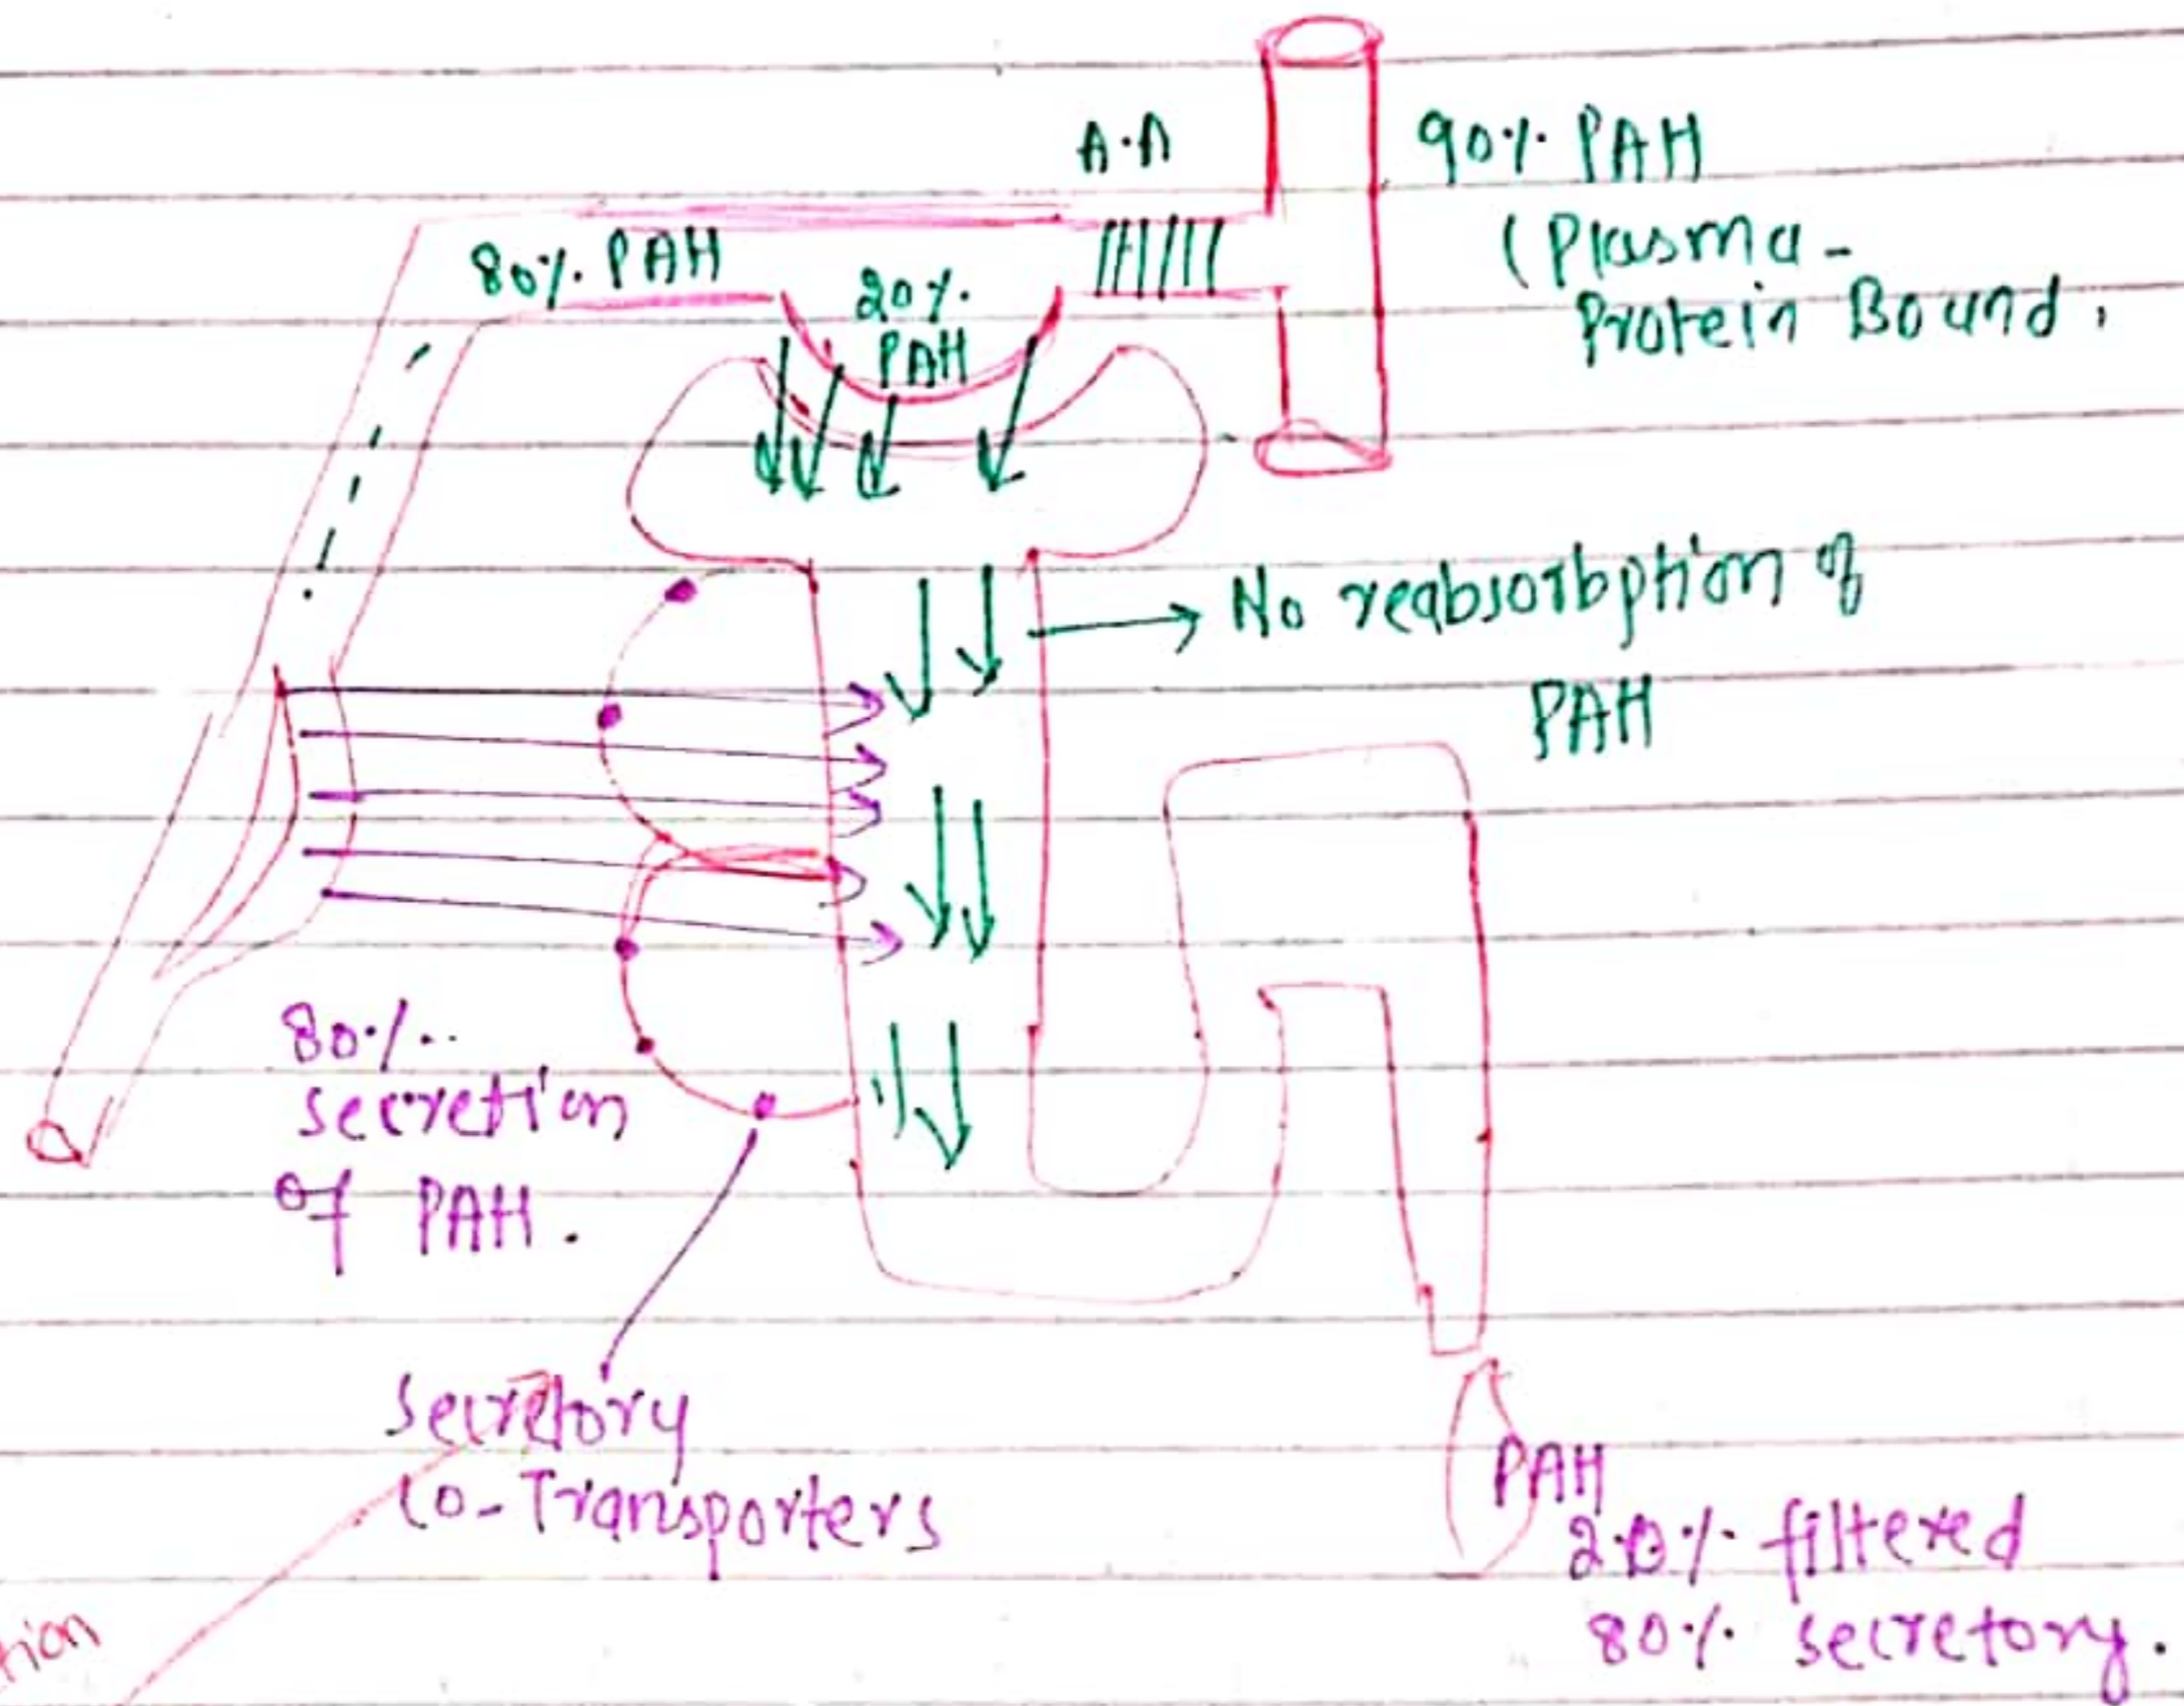 A.A
90% PAH
(Plasma-
Protein Bound.
80% PAH
20%
PAH
No reabsorbption of
PAH
80%
secretion
of PAH.
Secretory
Co-Transporters
PAH
20% filtered
80% secretory.
tion